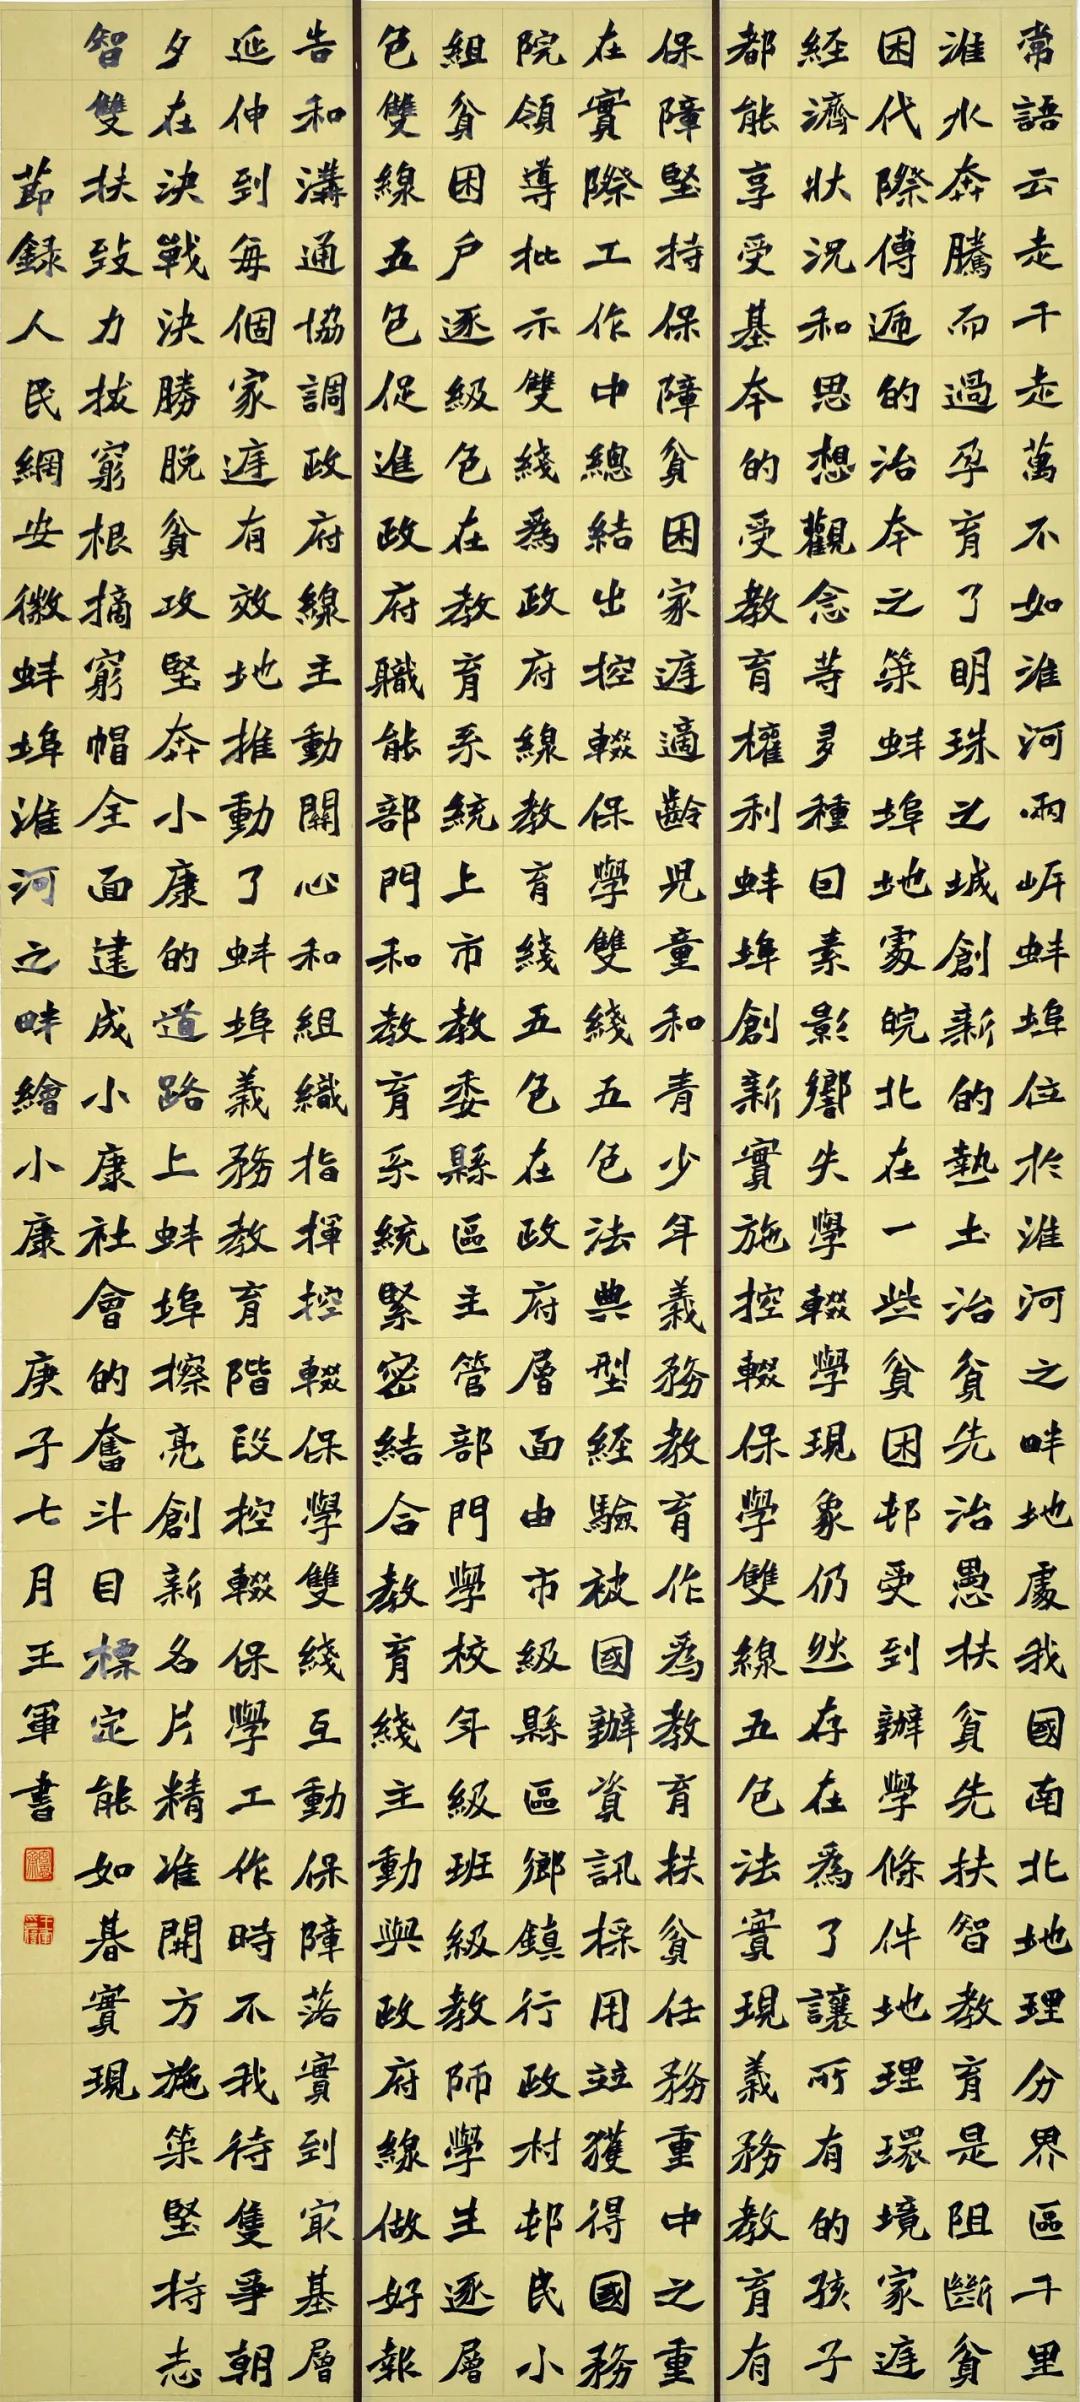 常語云走千走萬不如淮河兩岍蚌埠位於淮河之畔地處我國南北地理分界區千里
淮水奔騰而過孕育了明珠之城創新的熱土治貧先治愚扶貧先扶智教育是阻斷貧
困代際傳遞的治本之策蚌埠地處皖北在一些貧困邨受到辦學條件地理環境家庭
經濟狀況和思想觀念等多種因素影響失學輟學現象仍然存在為了讓所有的孩子
都能享受基本的受教育權利蚌埠創新實施控輟保學雙線五包法實現義務教育有
保障堅持保障貧困家庭適齡兒童和青少年義務教育作為教育扶貧任務重中之重
在實際工作中總結出控輟保學雙綫五包法典型經驗被國辦資訊採用並獲得國務
院領導批示雙綫為政府線教育綫五包在政府層面由市級縣區鄉鎮行政村邨民小
組貧困户逐級包在教育系統上市教委縣區主管部門學校年級班級教師學生逐層
包雙線五包促進政府職能部門和教育系統緊密結合教育綫主動與政府線做好報
告和溝通協調政府線主動關心和組織指揮控輟保學雙綫互動保障落實到冣基層
延伸到每個家庭有效地推動了蚌埠義務教育階段控輟保學工作時不我待隻爭朝
夕在決戰決勝脫貧攻堅奔小康的道路上蚌埠擦亮創新名片精准開方施策堅持志
智雙扶致力拔窮根摘窮帽全面建成小康社會的奮斗目標定能如碁實現
節録人民網安徽蚌埠淮河之畔繪小康 庚子七月王軍書